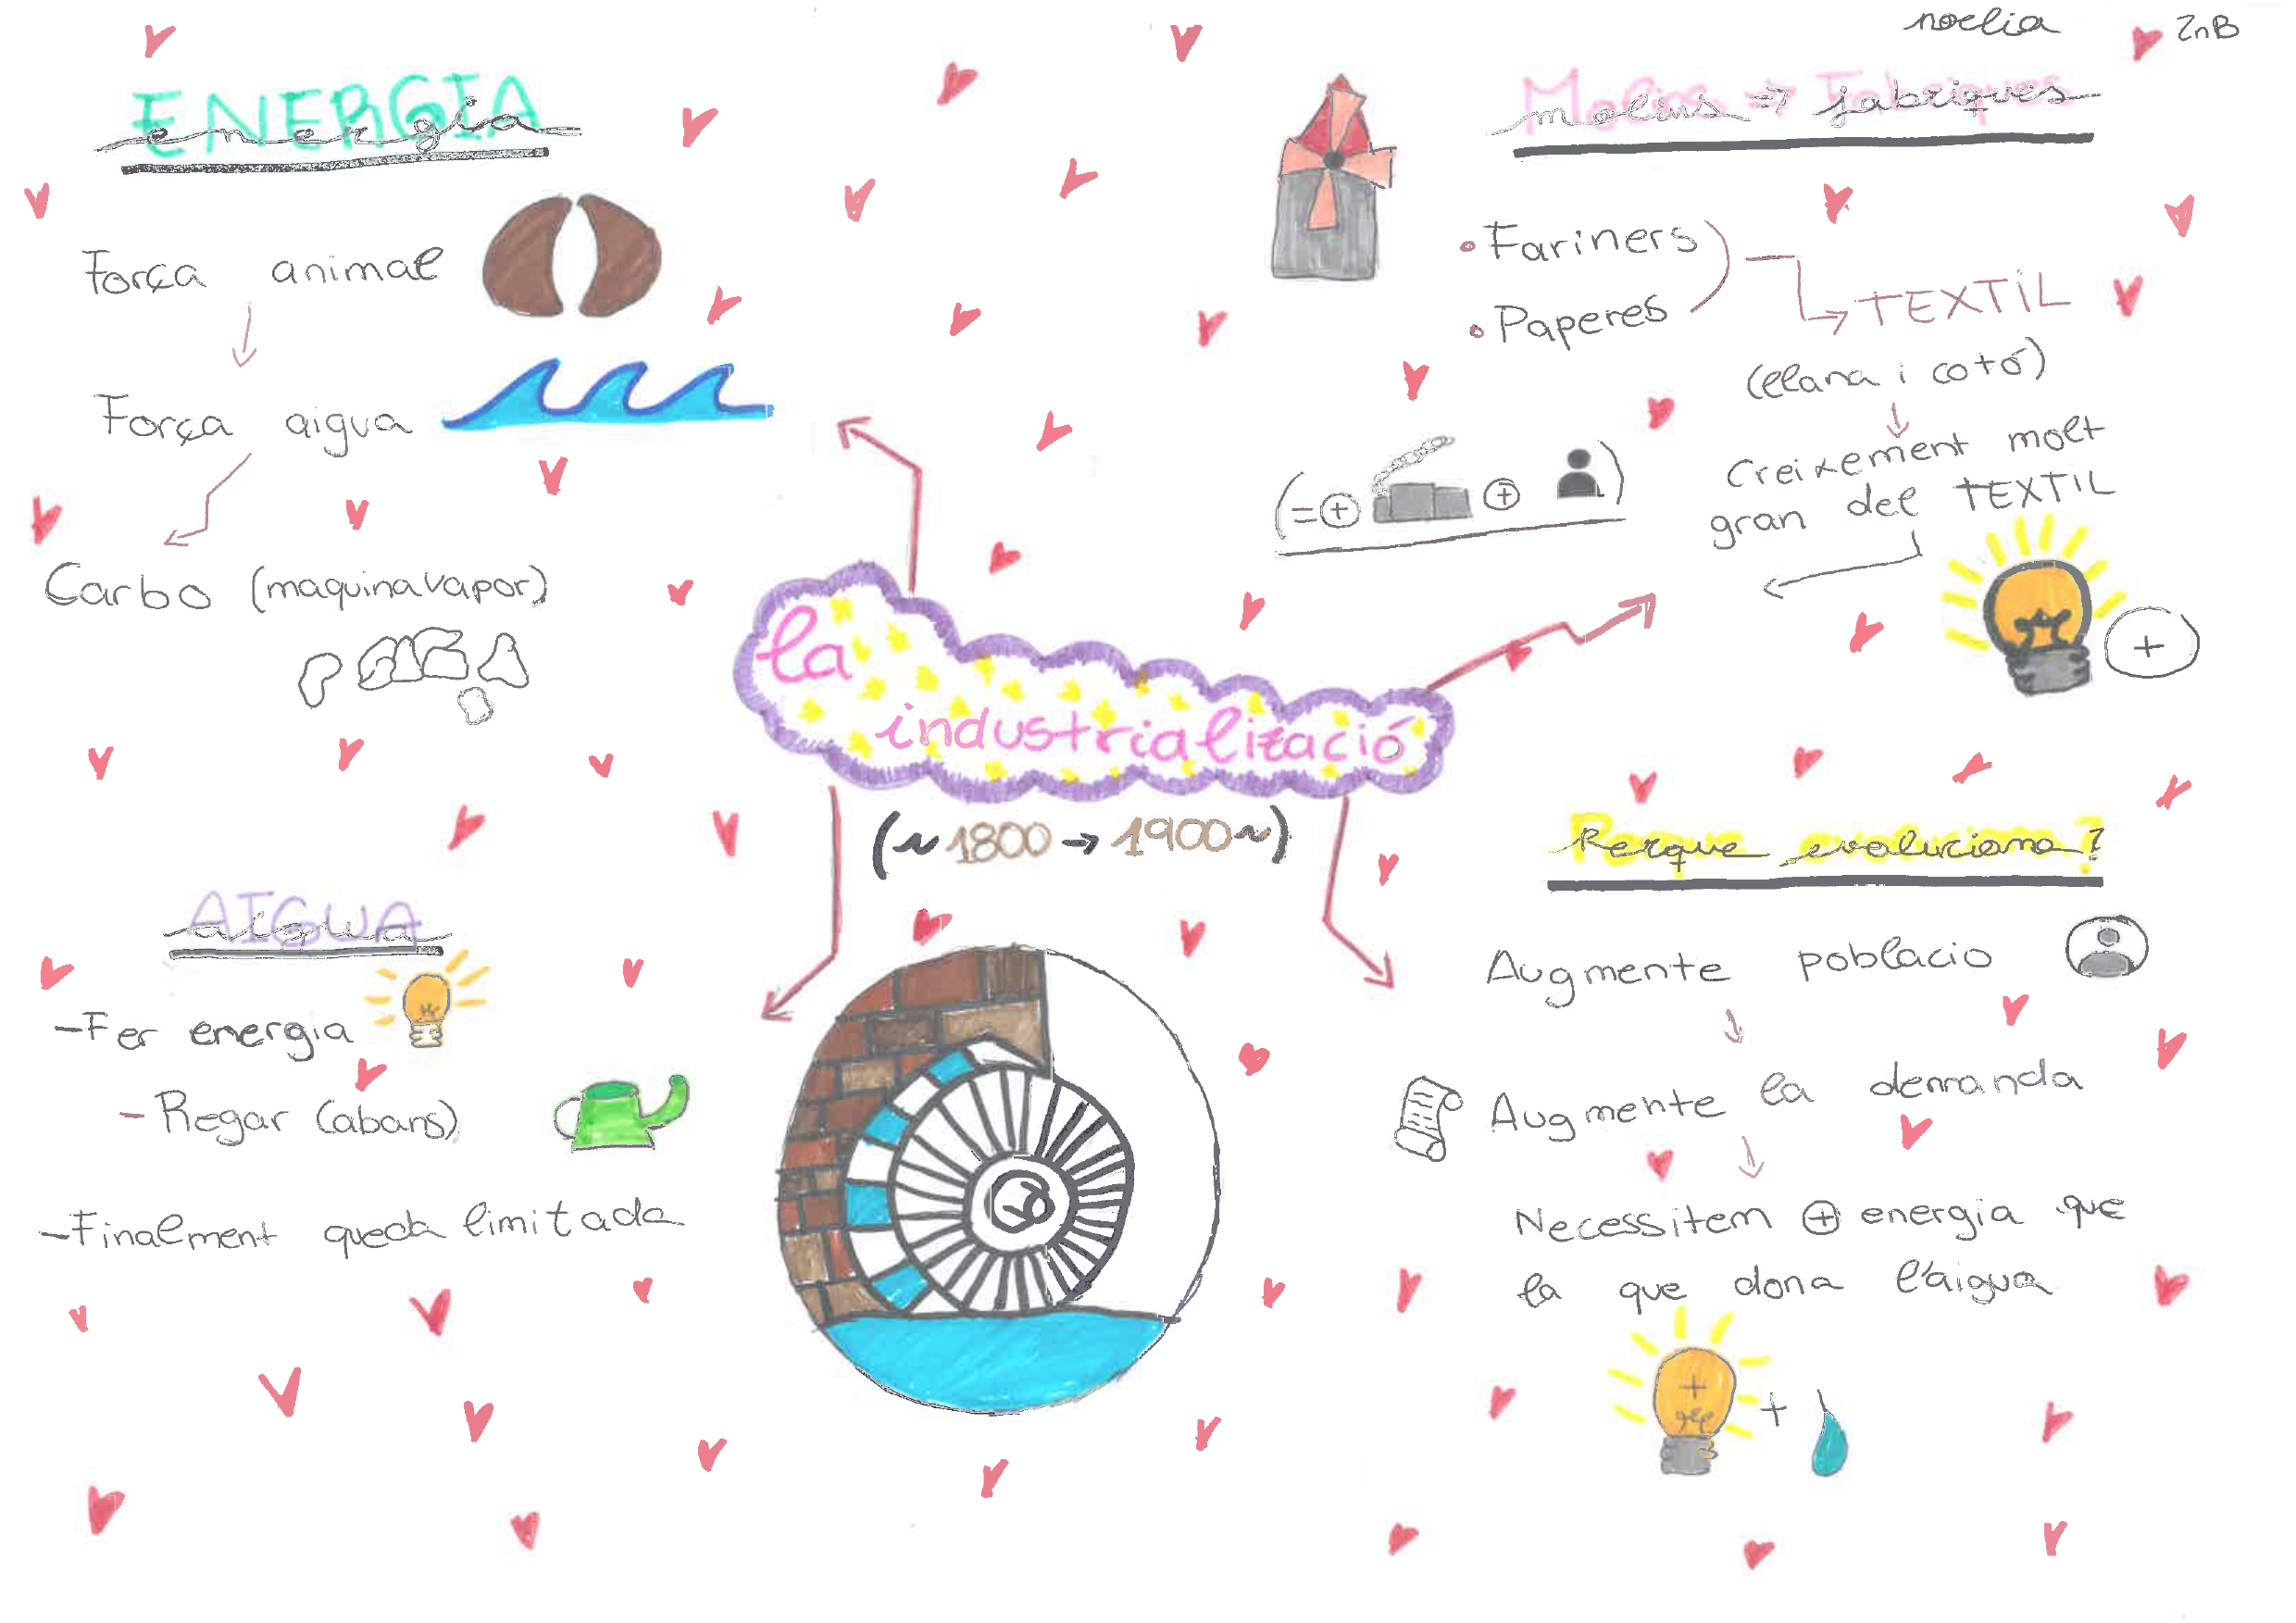 noelia 2nB
ENERGIA
energia
Força animal
Força aigua
Carbo (maquina vapor)
Molins => Fabriques
molins => fabriques
• Fariners
• Paperes
TEXTiL
(llana i cotó)
Creixement molt
gran del TEXTIL
(=+ +)
+
la
industrialització
(~1800 → 1900~)
AIGUA
aigua
-Fer energia
- Regar (abans)
-Finalment queda limitada
Perque evoluciona?
Augmente poblacio
Augmente la demanda
Necessitem + energia que
la que dona l'aigua
+ +